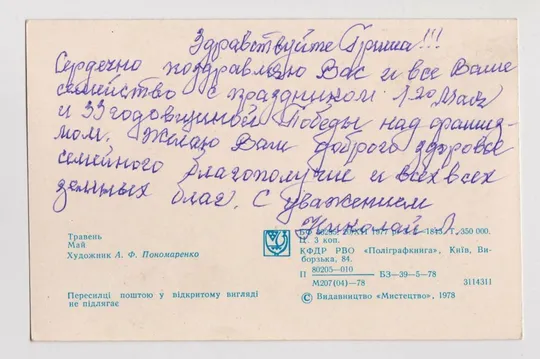 Здравствуйте Гриша!!!
Сердечно поздравляю Вас и все Ваше
семейство с праздником 1го Мая
и 33 годовщиной Победы над фашиз-
мом. Желаю Вам доброго здоровье
семейного благополучие и всех всех
земных благ. С уважением
Николай Л.
Травень
Май
Художник А. Ф. Пономаренко
350 000.
Ц. 3 коп.
КФДР РВО «Поліграфкнига», Київ, Ви-
борзька, 84.
П 80205—010 БЗ—39—5—78
М207(04)—78 3114311
© Видавництво «Мистецтво», 1978
Пересилці поштою у відкритому вигляді
не підлягає